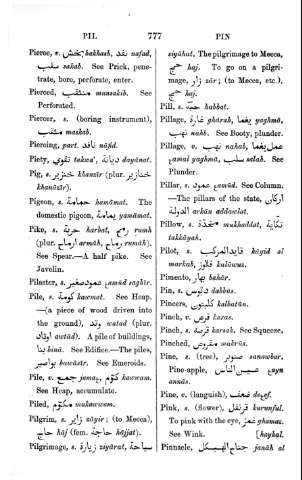 PIL 777 PIN
Pierce, v. بخش bakhash, نفد nafad,
سقب saḥab. See Prick, pene-
trate, bore, perforate, enter.
Pierced, منثقب munsakib. See
Perforated.
Piercer, s. (boring instrument),
مثقب maskab.
Piercing, part. نافد náfid.
Piety, تقوي takwa', ديانة dayánat.
Pig, s. خنزير khanzír (plur. خنازير
khanázír).
Pigeon, s. حمامة hamámat. The
domestic pigeon, يمامة yamámat.
Pike, s. حربة harbat, رمح rumh
(plur. ارماح armáh, رماح rimáh).
See Spear.—A half pike. See
Javelin.
Pilaster, s. عمود صغير ʿamúd saghír.
Pile, s. كومة kawmat. See Heap.
—(a piece of wood driven into
the ground), وتد watad (plur.
اوتاد awtád). A pile of buildings,
بنا biná. See Edifice.—The piles,
بواسير bawásír. See Emeroids.
Pile, v. جمع jamaʿ, كوم kawwam.
See Heap, accumulate.
Piled, مكوم mukawwam.
Pilgrim, s. زاير záyir; (to Mecca),
حاج háj (fem. حاجة hájjat).
Pilgrimage, s. زيارة ziyárat, سياحة
siyáhat. The pilgrimage to Mecca,
حج haj. To go on a pilgri-
mage, زار zár; (to Mecca, etc.),
حج haj.
Pill, s. حبة habbat.
Pillage, غارة ghárah, يغما yaghmá,
نهب nahb. See Booty, plunder.
Pillage, v. نهب nahab, عمل يغما
ʿamal yaghma, سلب salab. See
Plunder.
Pillar, s. عمود ʿamúd. See Column.
—The pillars of the state, اركان
الدولة arkán addawlat.
Pillow, s. مخدة mukhaddat, تكاية
takkáyah.
Pilot, s. قايد المركب káyid al
markab, قلاوز kuláwuz.
Pimento, بهار bahár.
Pin, s. دبوس dabbús.
Pincers, كلبتون kalbatún.
Pinch, v. قرص karas.
Pinch, s. قرصة karsah. See Squeeze.
Pinched, مقروص makrús.
Pine, s. (tree), صنوبر sanawbar.
Pine-apple, عين الناس ʿayn
annás.
Pine, v. (languish), ضعف daʿef.
Pink, s. (flower), قرنفل kurunful.
To pink with the eye, غمز ghamaz.
See Wink. [haykal.
Pinnacle, جناح الهيكل janáh al